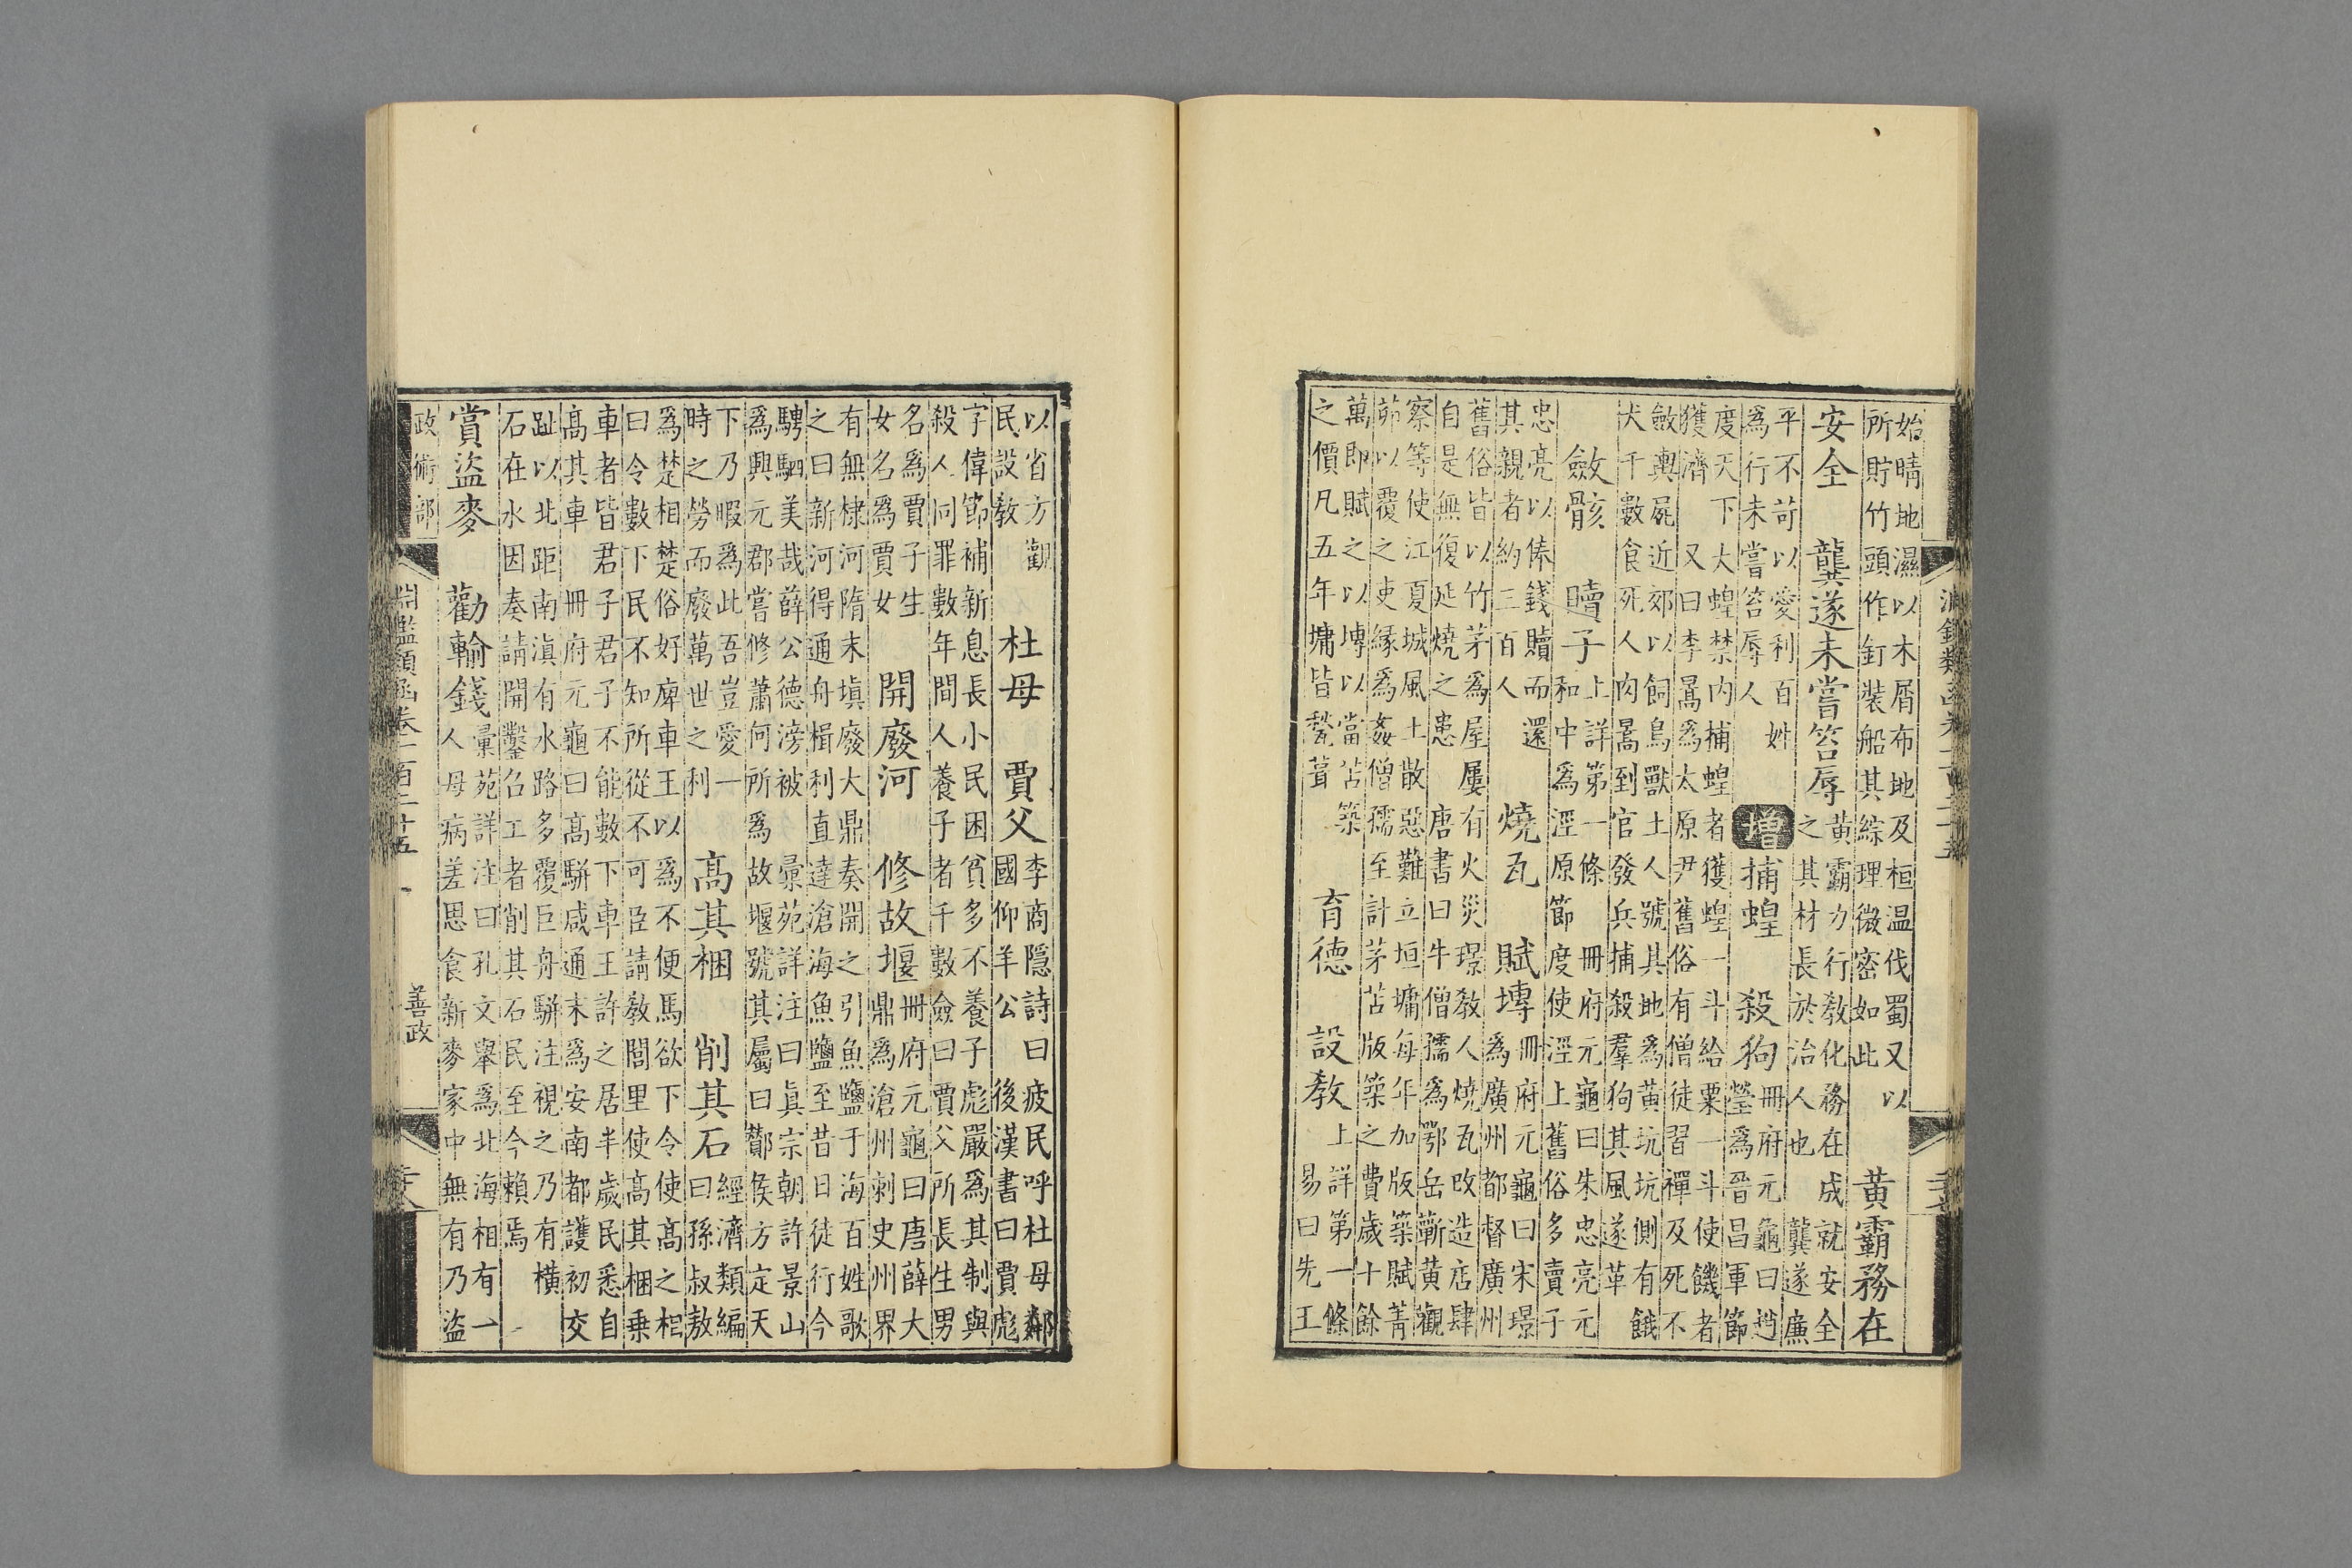 淵鑑類函卷一百二十五
始晴地濕以木屑布地及桓温伐蜀又以
所貯竹頭作釘裝船其綜理微密如此
黃霸務在
安全　龔遂未嘗笞辱
黃霸力行教化務在成就安全
之其材長於治人也　龔遂廉
平不苛以愛利百姓
為行未嘗笞辱人
增捕蝗　殺狗
冊府元龜曰趙
瑩為晉昌軍節
度天下大蝗禁内捕蝗者獲蝗一斗給粟一斗使饑者
獲濟　又曰李暠為太原尹舊俗有僧徒習禪及死不
斂輿屍近郊以飼鳥獸土人號其地為黃坑坑側有餓
犬千數食死人肉暠到官發兵捕殺羣狗其風遂革
斂骸　贖子
上詳第一條　冊府元龜曰朱忠亮元
和中為涇原節度使涇上舊俗多賣子
忠亮以俸錢贖而還
其親者約三百人
燒瓦　賦塼
冊府元龜曰宋璟
為廣州都督廣州
舊俗皆以竹茅為屋屢有火災璟教人燒瓦改造店肆
自是無復延燒之患　唐書曰牛僧孺為鄂岳蘄黃觀
察等使江夏城風土散惡難立垣墉每年加版築賦菁
茆以覆之吏緣為姦僧孺至計茅苫版築之費歲十餘
萬即賦之以塼以當苫築
之價凡五年墉皆甃葺
育德　設教
上詳第一條
易曰先王
以省方觀
民設教
杜母　賈父
李商隱詩曰疲民呼杜母鄰
國仰羊公　後漢書曰賈彪
字偉節補新息長小民困貧多不養子彪嚴為其制與
殺人同罪數年間人養子者千數僉曰賈父所長生男
名為賈子生
女名為賈女
開廢河　修故堰
冊府元龜曰唐薛大
鼎為滄州刺史州界
有無棣河隋末塡廢大鼎奏開之引魚鹽于海百姓歌
之曰新河得通舟楫利直達滄海魚鹽至昔日徒行今
騁駟美哉薛公德滂被　彙苑詳注曰眞宗朝許景山
為興元郡嘗修蕭何所為故堰號其屬曰酇侯方定天
下乃暇為此吾豈愛一
時之勞而廢萬世之利
高其梱　削其石
經濟類編
曰孫叔敖
為楚相楚俗好庳車王以為不便馬欲下令使高之相
曰令數下民不知所從不可臣請教閭里使高其梱乗
車者皆君子君子不能數下車王許之居半歲民悉自
高其車　冊府元龜曰高駢咸通末為安南都護初交
趾以北距南滇有水路多覆巨舟駢注視之乃有橫
石在水因奏請開鑿召工者削其石民至今賴焉
賞盜麥　勸輸錢
彙苑詳注曰孔文舉為北海相有一
人母病差思食新麥家中無有乃盜
政術部　淵鑑類函卷一百二十五　善政